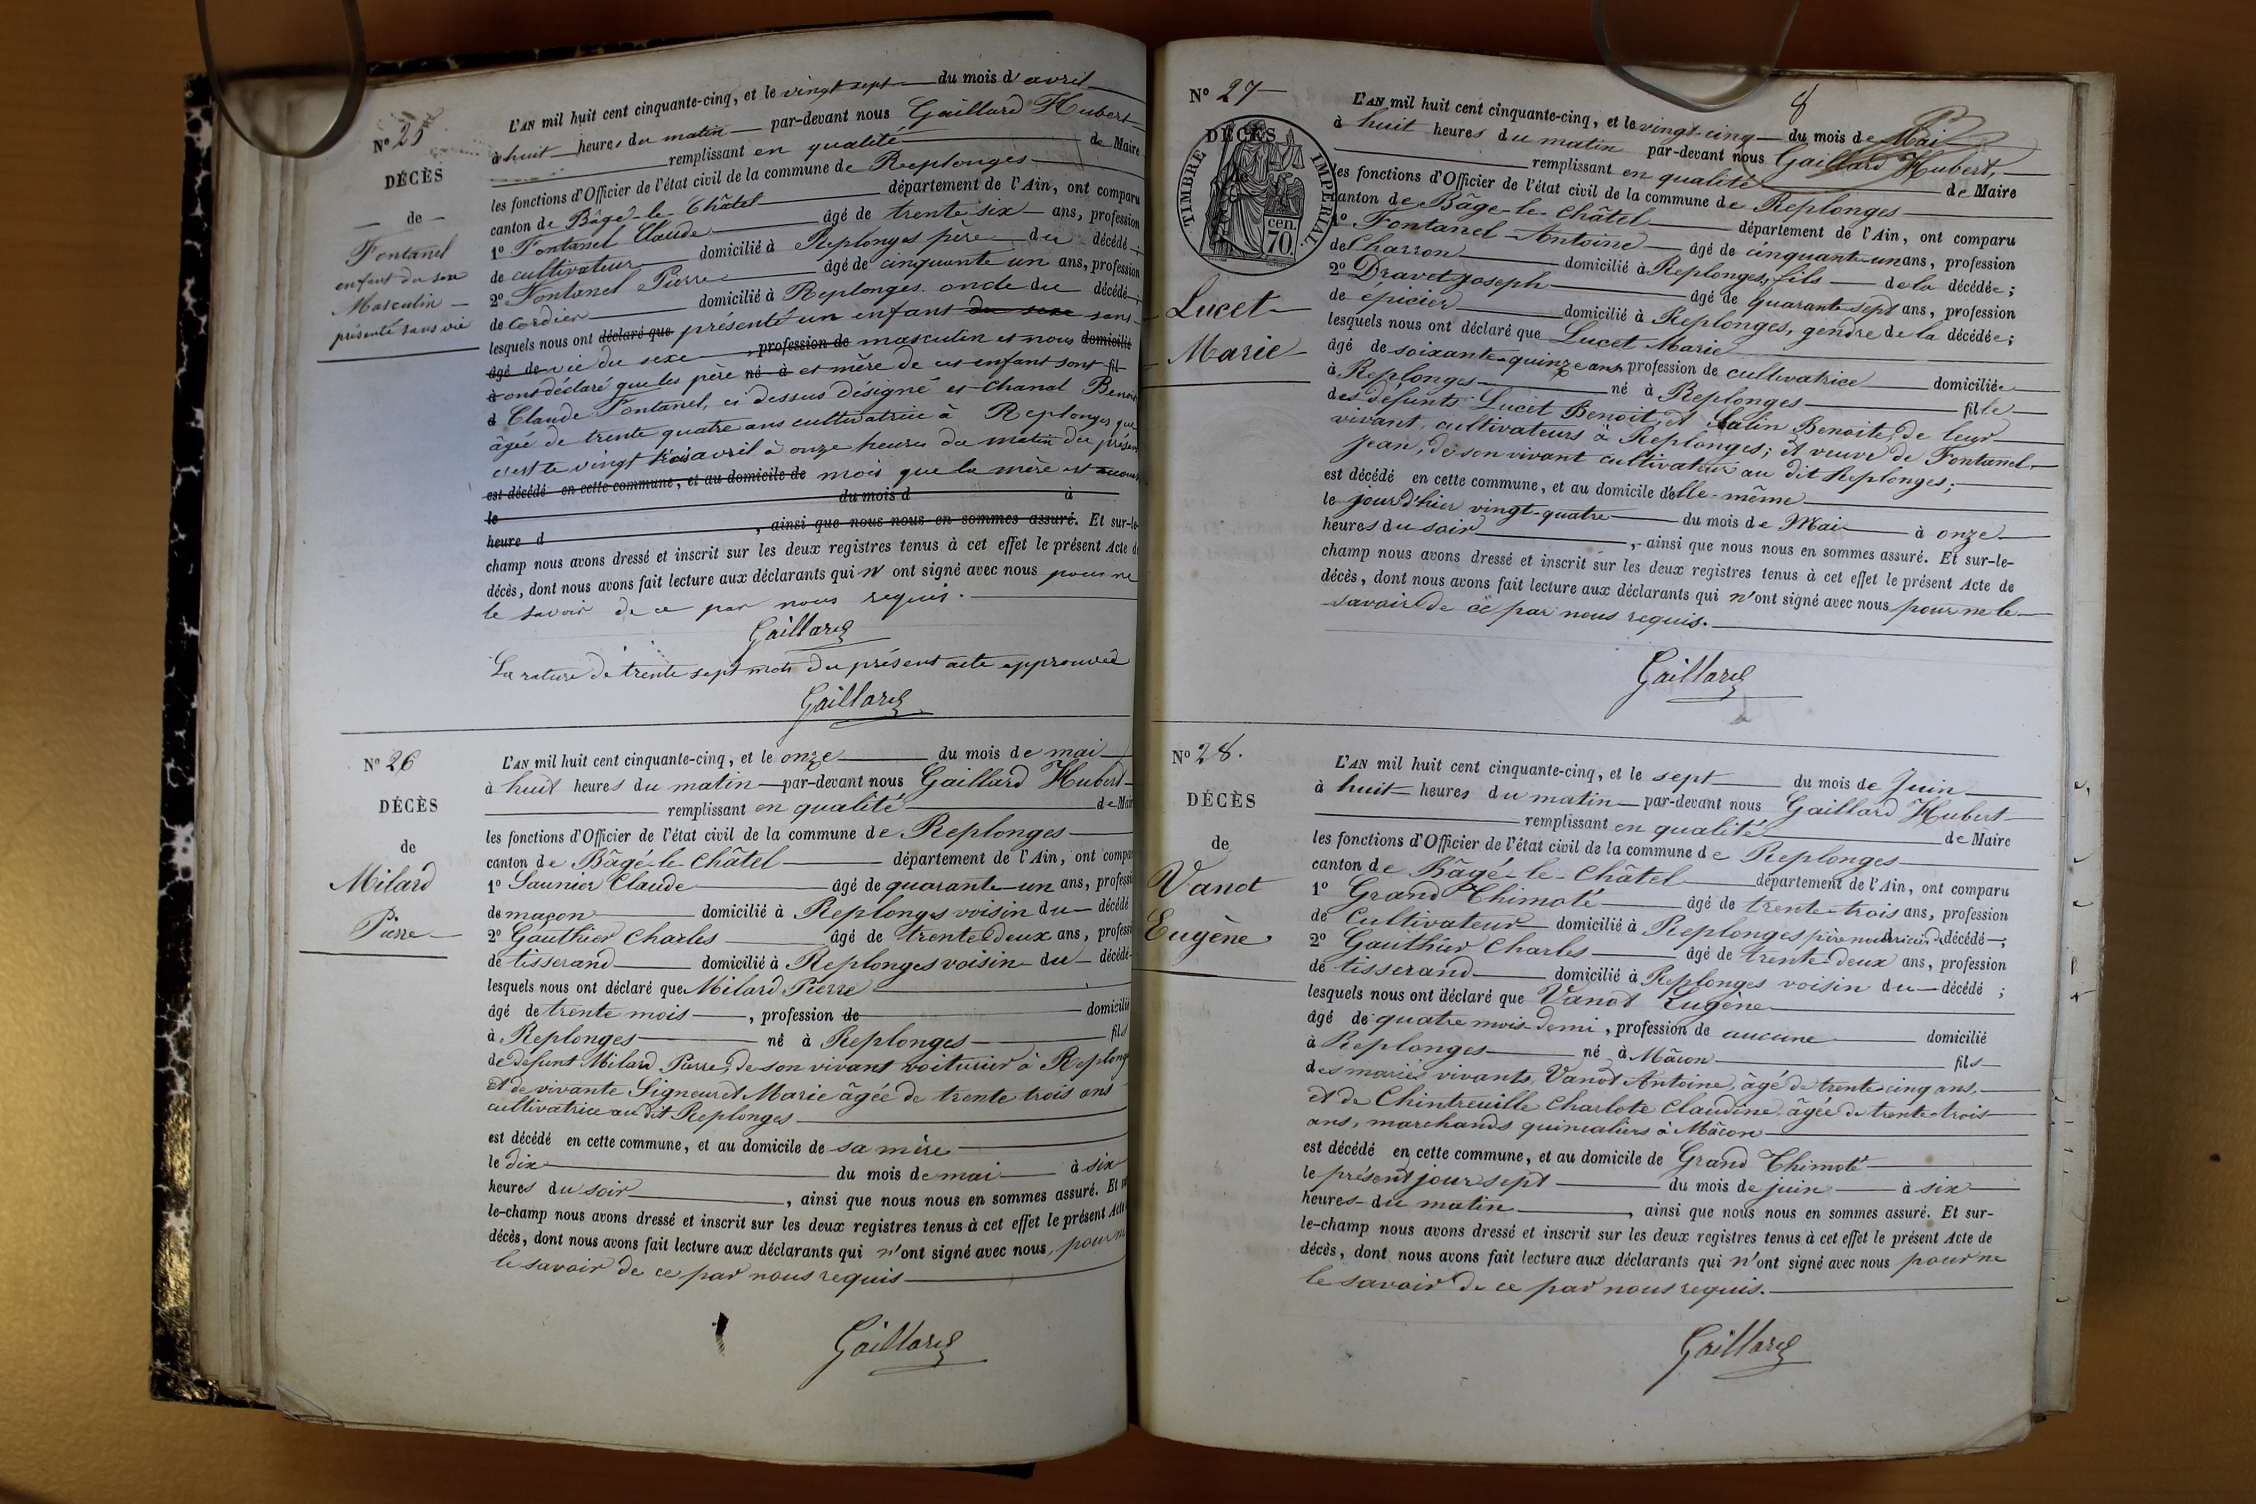 N° 25
DÉCÈS
de
Fontanel
enfant du sexe
Masculin
présenté sans vie
L'AN mil huit cent cinquante-cinq, et le vingt sept du mois d'avril
à huit heures du matin par-devant nous Gaillard Hubert
remplissant en qualité de Maire
les fonctions d'Officier de l'état civil de la commune de Replonges
canton de Bâgé-le-Châtel département de l'Ain, ont comparu
1° Fontanel Claude âgé de trente six ans, profession
de cultivateur domicilié à Replonges père du décédé;
2° Fontanel Pierre âgé de cinquante un ans, profession
de cordier domicilié à Replonges oncle du décédé;
lesquels nous ont déclaré que présenté un enfant du sexe sans
âgé de vie du sexe, profession de masculin et nous domicilié
à ont déclaré que les père né à et mère de cet enfant sont fil
d Claude Fontanel, ci dessus désigné et Chanal Benoi
âgée de trente quatre ans cultivatrice à Replonges que
c'est le vingt avril à onze heures du matin du présent
est décédé en cette commune, et au domicile de mois que la mère est
le du mois d à
heure d, ainsi que nous nous en sommes assuré. Et sur-le-
champ nous avons dressé et inscrit sur les deux registres tenus à cet effet le présent Acte de
décès, dont nous avons fait lecture aux déclarants qui n'ont signé avec nous pour ne
le savoir de ce par nous requis.
Gaillard
La rature de trente sept mots du présent acte approuvée
Gaillard
N° 26
DÉCÈS
de
Milard
Pierre
L'AN mil huit cent cinquante-cinq, et le onze du mois de mai
à huit heures du matin par-devant nous Gaillard Hubert
remplissant en qualité de Mai
les fonctions d'Officier de l'état civil de la commune de Replonges
canton de Bâgé-le-Châtel département de l'Ain, ont compa
1° Saunier Claude âgé de quarante-un ans, professi
de maçon domicilié à Replonges voisin du décédé
2° Gauthier Charles âgé de trente deux ans, profess
de tisserand domicilié à Replonges voisin du décédé
lesquels nous ont déclaré que Milard Pierre
âgé de trente mois, profession de domicilié
à Replonges né à Replonges fils
de défunt Milard Pierre, de son vivant voiturier à Replong
et de vivante Signeuret Marie âgée de trente trois ans
cultivatrice au dit Replonges
est décédé en cette commune, et au domicile de sa mère
le dix du mois de mai à six
heures du soir, ainsi que nous nous en sommes assuré. Et
le-champ nous avons dressé et inscrit sur les deux registres tenus à cet effet le présent Acte
décès, dont nous avons fait lecture aux déclarants qui n'ont signé avec nous, pour n
le savoir de ce par nous requis
Gaillard
8
N° 27
DÉCÈS
TIMBRE IMPÉRIAL
cen.
70.
Lucet
Marie
L'AN mil huit cent cinquante-cinq, et le vingt-cinq du mois de Mai
à huit heures du matin par-devant nous Gaillard Hubert,
remplissant en qualité de Maire
les fonctions d'Officier de l'état civil de la commune de Replonges
canton de Bâge-le-Châtel département de l'Ain, ont comparu
1° Fontanel Antoine âgé de cinquante-un ans, profession
de Charron domicilié à Replonges, fils de la décédée;
2° Dravet Joseph âgé de quarante sept ans, profession
de épicier domicilié à Replonges, gendre de la décédée;
lesquels nous ont déclaré que Lucet Marie
âgé de soixante-quinze ans profession de cultivatrice domiciliée
à Replonges né à Replonges fille
des défunts Lucet Benoit, et Salin Benoite, de leur
vivant, cultivateurs à Replonges; et veuve de Fontanel
Jean, de son vivant cultivateur au dit Replonges;
est décédé en cette commune, et au domicile d'elle-même
le jour d'hier vingt-quatre du mois de Mai à onze
heures du soir, ainsi que nous nous en sommes assuré. Et sur-le-
champ nous avons dressé et inscrit sur les deux registres tenus à cet effet le présent Acte de
décès, dont nous avons fait lecture aux déclarants qui n'ont signé avec nous pour ne le
savoir de ce par nous requis.
Gaillard
N° 28.
DÉCÈS
de
Vanot
Eugène
L'AN mil huit cent cinquante-cinq, et le sept du mois de Juin
à huit heures du matin par-devant nous Gaillard Hubert
remplissant en qualité de Maire
les fonctions d'Officier de l'état civil de la commune de Replonges
canton de Bâgé-le-Châtel département de l'Ain, ont comparu
1° Grand Thimoté âgé de trente-trois ans, profession
de Cultivateur domicilié à Replonges père nourricier du décédé;
2° Gauthier Charles âgé de trente-deux ans, profession
de tisserand domicilié à Replonges voisin du décédé;
lesquels nous ont déclaré que Vanot Eugène
âgé de quatre mois demi, profession de aucune domicilié
à Replonges né à Mâcon fils
des mariés vivants, Vanot Antoine, âgé de trente-cinq ans,
et de Chintreuille Charlote Claudine âgée de trente-trois
ans, marchands quincaliers à Mâcon
est décédé en cette commune, et au domicile de Grand Thimoté
le présent jour sept du mois de juin à six
heures du matin, ainsi que nous nous en sommes assuré. Et sur-
le-champ nous avons dressé et inscrit sur les deux registres tenus à cet effet le présent Acte de
décès, dont nous avons fait lecture aux déclarants qui n'ont signé avec nous pour ne
le savoir de ce par nous requis.
Gaillard